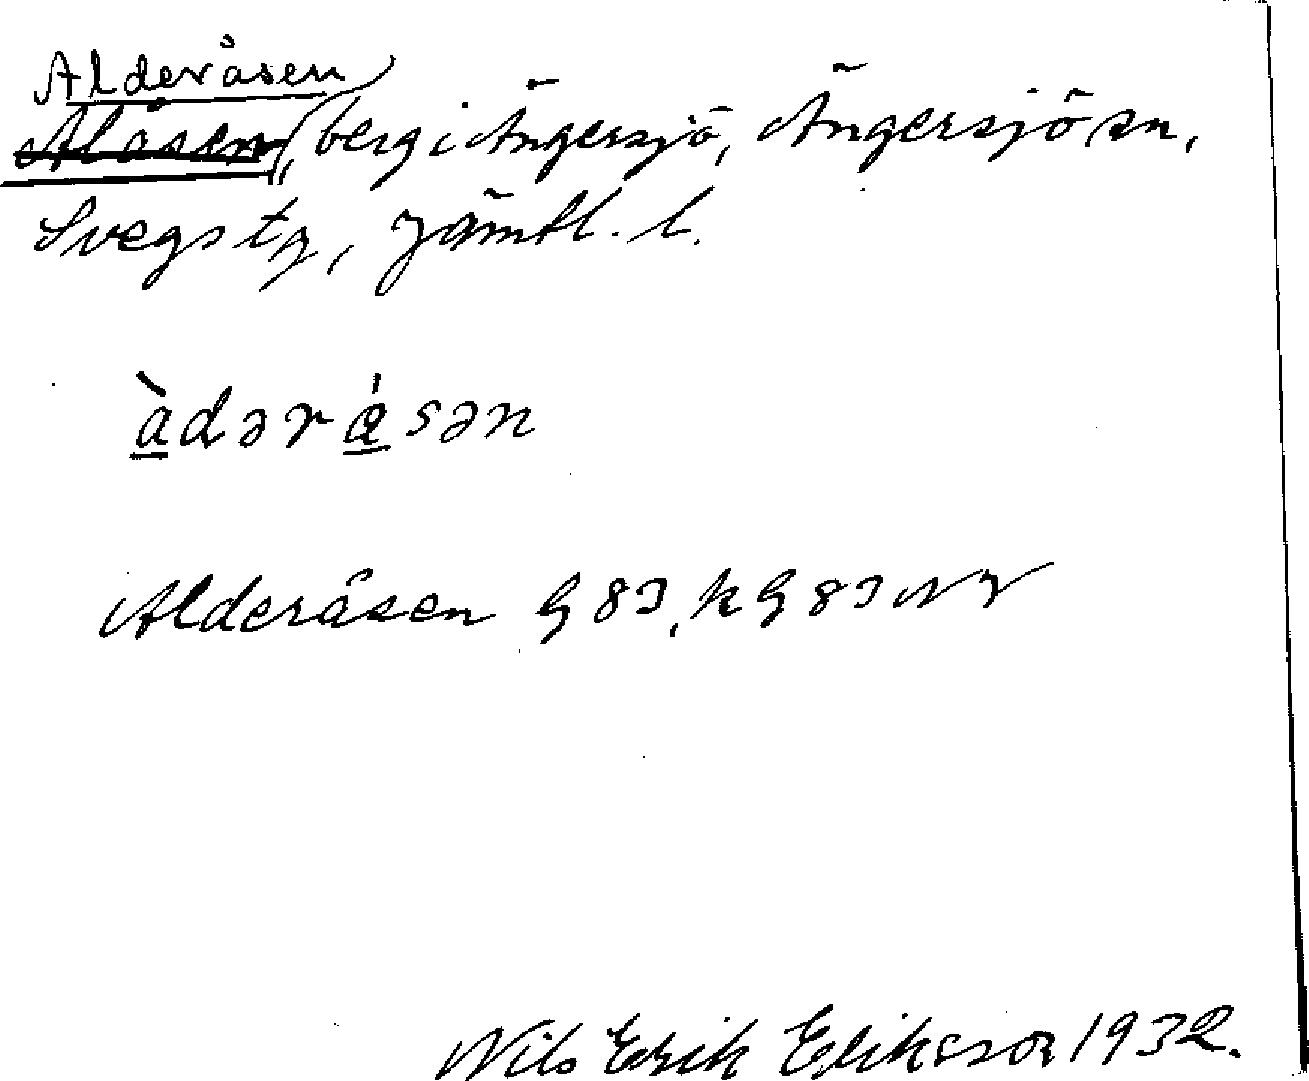 Alderåsen
Alåsen, berg i Ängersjö, Ängersjö sn,
Svegs tg, Jämtl. l.
àdərásən
Alderåsen G 83, k G 83 NV
Nils Erik Eriksson 1932.